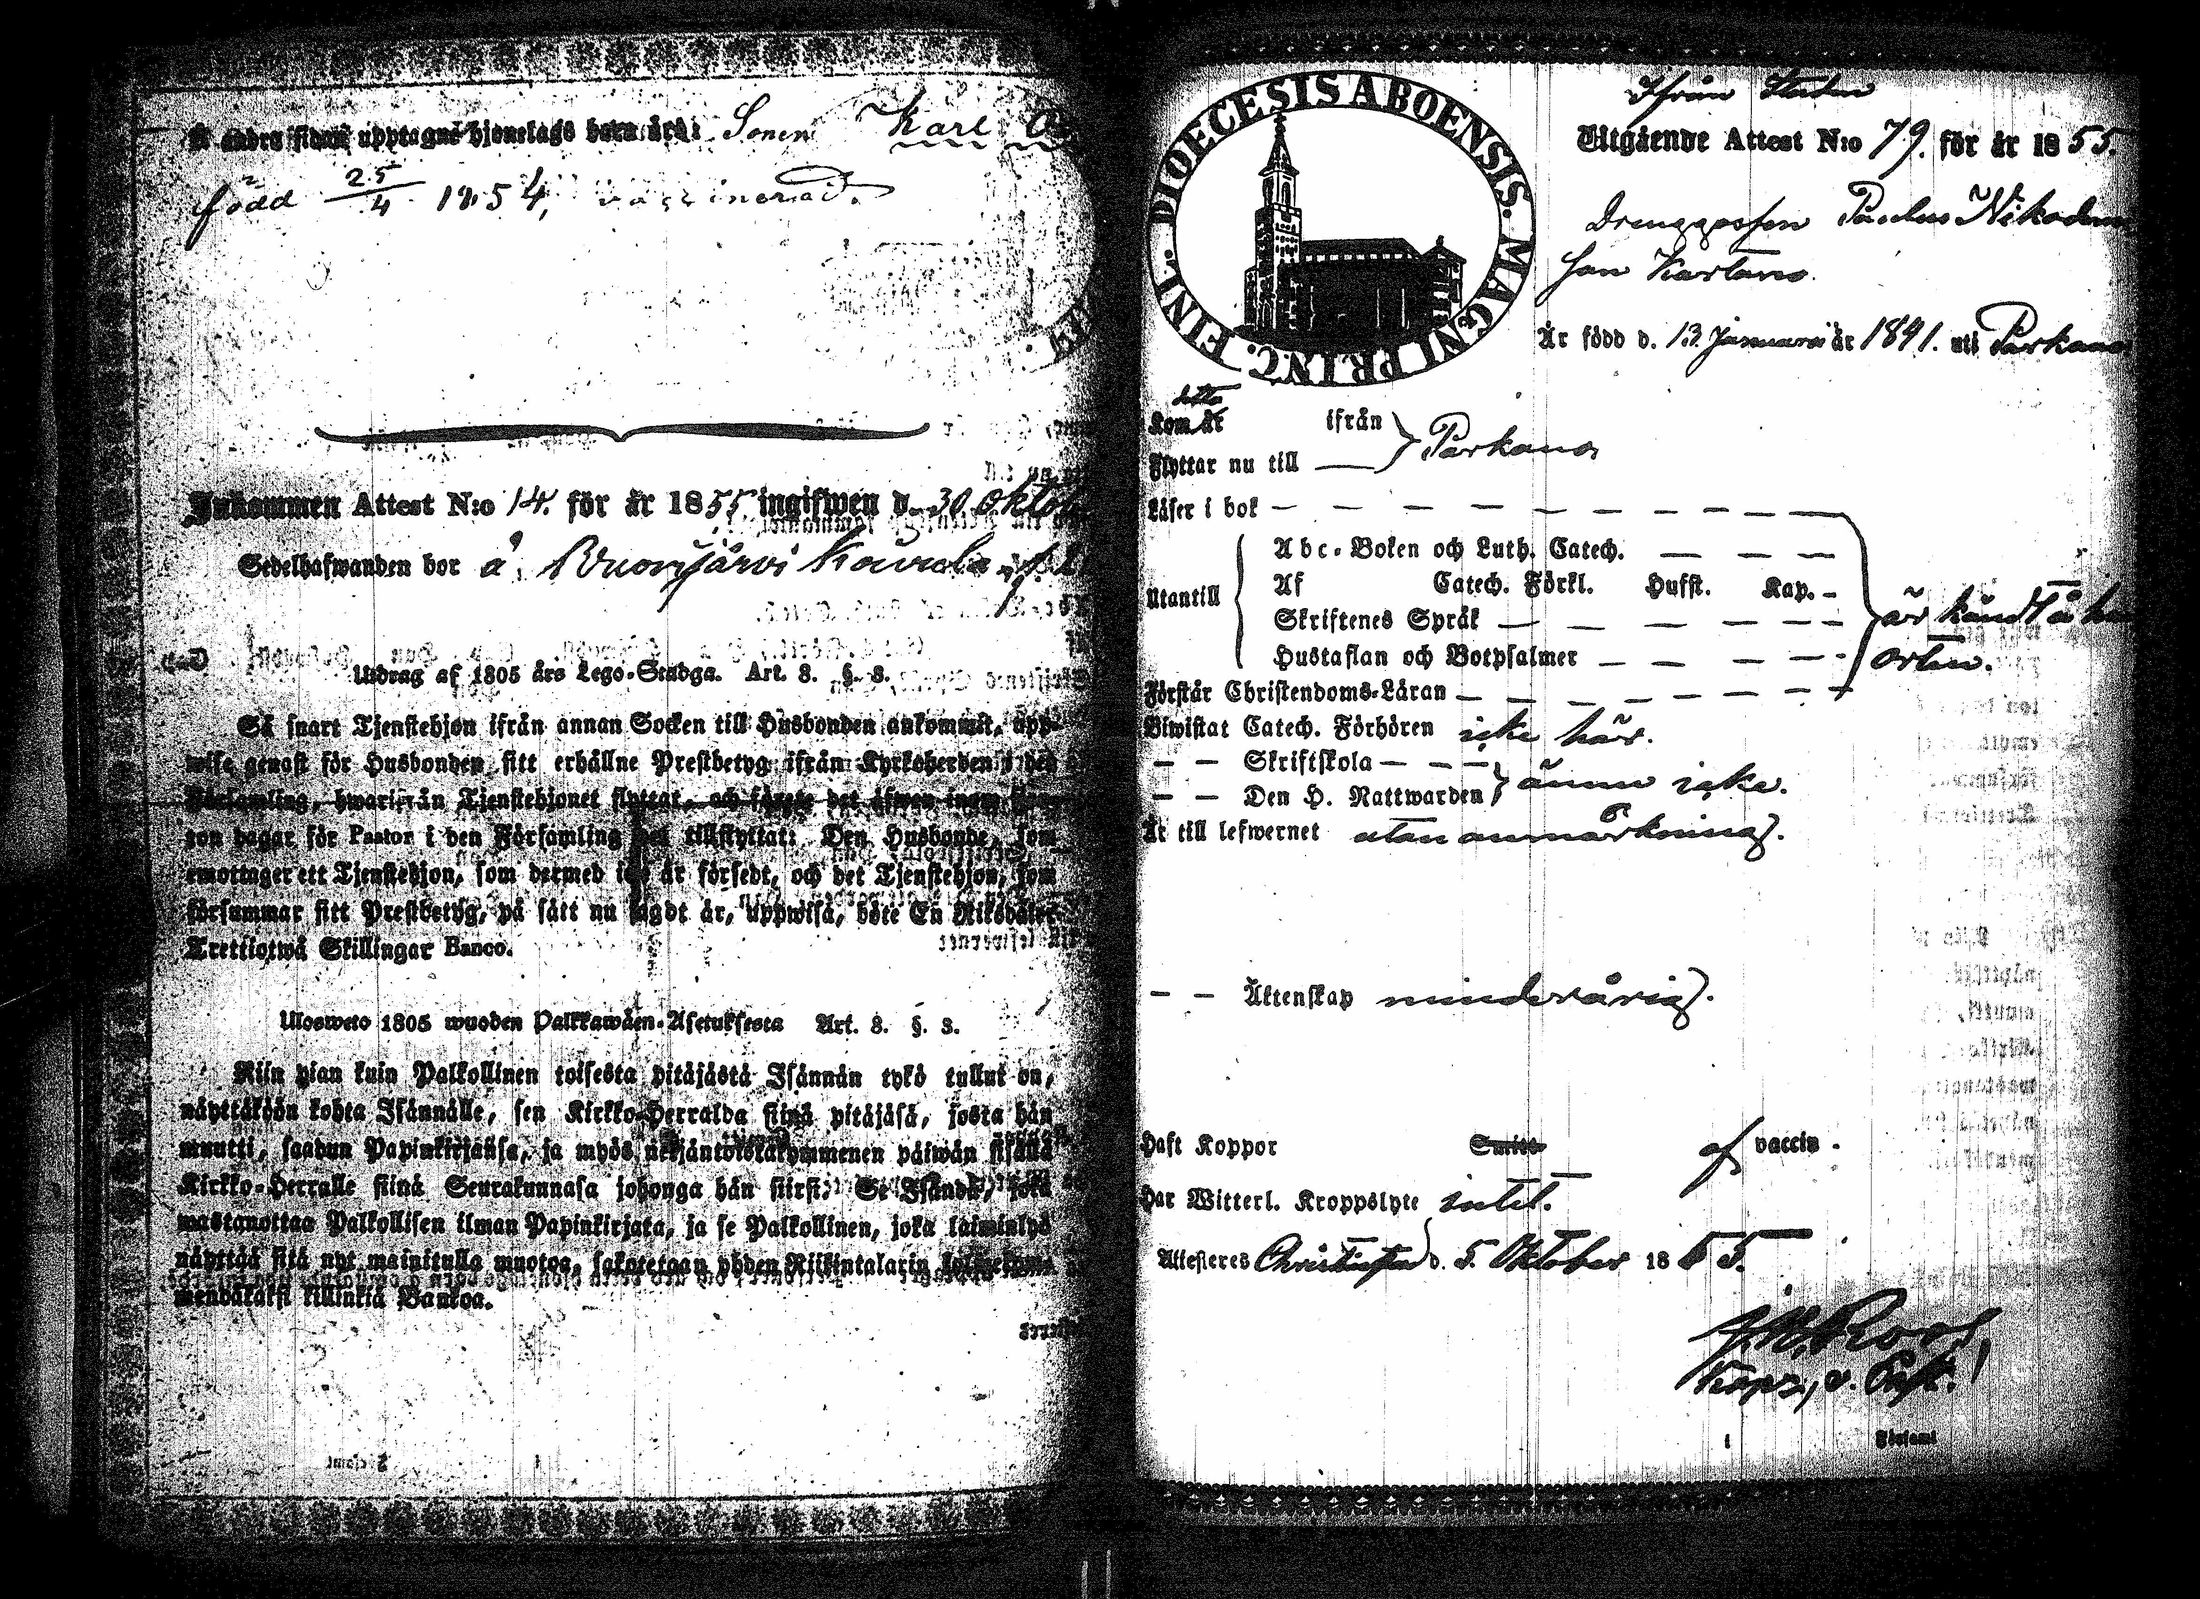 å andra sidan upptagne hjonelags barn äro: Sonen Karl
född 25/4 1854, vaccinerad.
Inkommen Attest N:o 14. för år 1855 ingifwen d. 30 Oktob
Sedelhafwanden bor å
Utdrag af 1805 års Lego-Stadga. Art. 8. §. 3.
Så snart Tjenstehjon ifrån annan Socken till Husbonden ankommit, upp-
wise genast för Husbonden sitt erhållne Prestbetyg ifrån Kyrkoherden i den
Församling, hwarifrån Tjenstehjonet flyttat, och
ton dagar för Pastor i den Församling det tillflyttat: Den Husbonde, som
emottager ett Tjenstehjon, som dermed är försedt, och det Tjenstehjon, som
försummar sitt Prestbetyg, på sått nu sagdt är, uppwisa, böte En Riksdaler
Trettiotwå Skillingar Banco.
Ulosweto 1805 wuoden Palkkawäen-Asetuksesta Art. 8. §. 3.
Niin pian kuin Palkollinen toisesta pitäjästä Isännän tykö tullut on,
näyttäköön kohta Isännälle, sen Kirkko-Herralda siinä pitäjäsä, josta hän
muutti, saadun Papinkirjansa, ja myös neljäntoistakymmenen päiwän sisällä
Kirkko-Herralle siinä Seurakunnasa johonga hän siirsi: Se Isändä, joka
wastanottaa Palkollisen ilman Papinkirjata, ja se Palkollinen, joka laiminlyö
näyttää sitä nyt mainitulla muotoa, sakotetaan yhden Riikintalarin
mendäkaksi killinkiä Bankoa.
DIOECESIS ABOENSIS. MAGNI PRINC. FINL.
Ifrån Staden
Utgående Attest N:o 79. för år 1855.
Drenggossen Paulus Nikodem
son Kartano.
Är född d. 13 Januari år 1841. uti Parkano
detta
Kom år ifrån
Flyttar nu till Parkano
Läser i bok
Utantill
Abc-Boken och Luth. Catech.
Af Catech. Förkl. Husst. Kap.
Skriftenes Språk
Hustaflan och Botpsalmer
är kändt å
orten.
Förstår Christendoms-Läran
Biwistat Catech. Förhören icke här.
Skriftskola
Den H. Nattwarden ännu icke.
Är till lefwernet utan anmärkning.
Äktenskap minderårig.
Haft Koppor Smitto af vaccin.
Har Witterl. Kroppslyte intet.
Attesteres Christinestad d. 5. Oktober 1855.
J. W. Roos,
Kapz, v. Past.